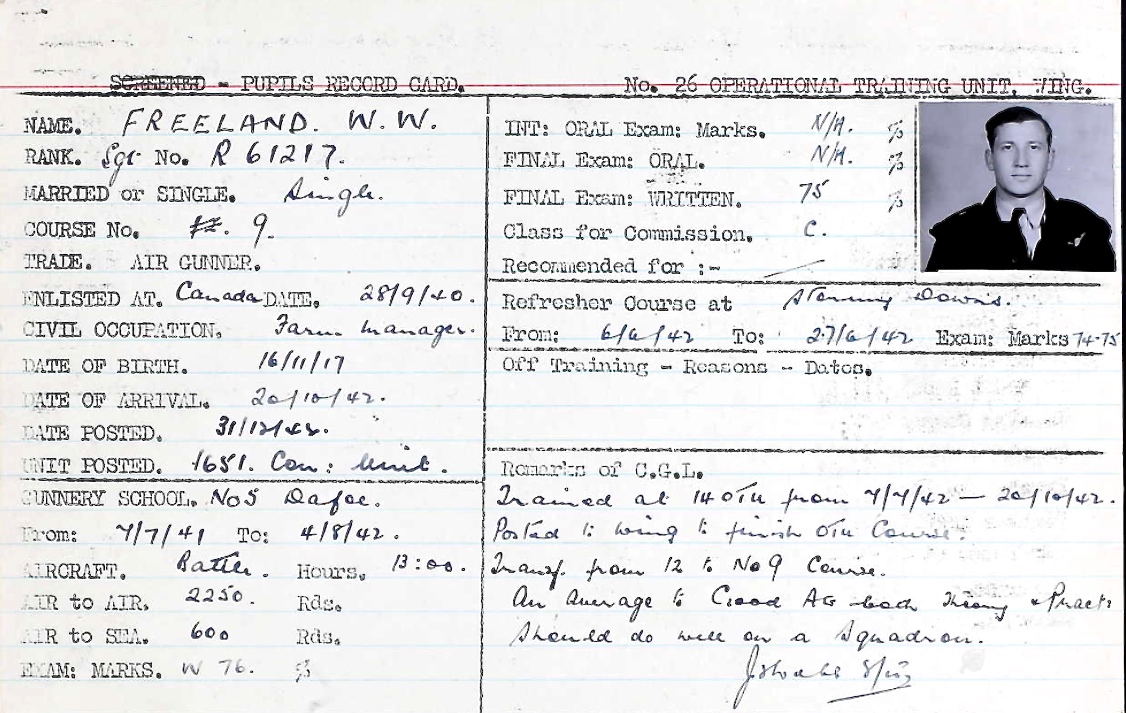 SCREENED - PUPILS RECORD CARD.
No. 26 OPERATIONAL TRAINING UNIT. WING.
NAME. FREELAND. W.W.
RANK. Sgt No. R 61217.
MARRIED or SINGLE. Single.
COURSE No. 9.
TRADE. AIR GUNNER.
ENLISTED AT. Canada DATE. 28/9/40.
CIVIL OCCUPATION. Farm Manager.
DATE OF BIRTH. 16/11/17
DATE OF ARRIVAL. 20/10/42.
DATE POSTED. 31/12/42.
UNIT POSTED. 1651. Con: Unit.
GUNNERY SCHOOL. No 5 Dafoe.
From: 7/7/41 To: 4/8/42.
AIRCRAFT. Battle. Hours. 13:00.
AIR to AIR. 2250. Rds.
AIR to SEA. 600 Rds.
EXAM: MARKS. W 76. %
INT: ORAL Exam: Marks. N/A. %
FINAL Exam: ORAL. N/A. %
FINAL Exam: WRITTEN. 75 %
Class for Commission. C.
Recommended for :-
Refresher Course at Downs.
From: 6/6/42 To: 27/6/42 Exam: Marks 74-75
Off Training - Reasons - Dates.
Remarks of C.G.L.
Trained at 14 OTU from 7/7/42 - 20/10/42.
Posted to Wing to finish OTU Course.
Transf. from 12 to No 9 Course.
An average to Good AG both Theory & Pract:
Should do well on a Squadron.